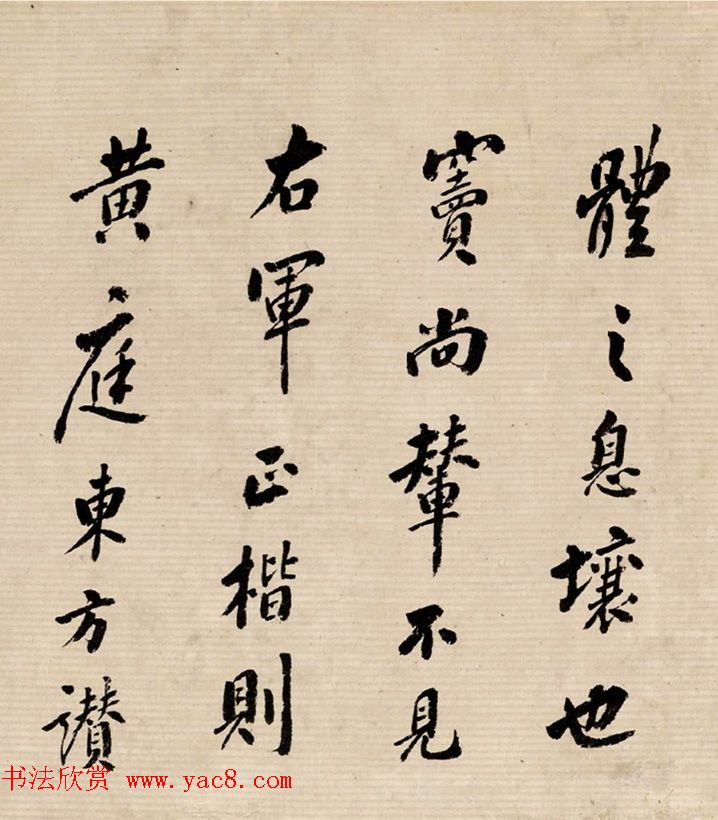 體之息壤也
竇尚輦不見
右軍正楷則
黄庭東方讃
书法欣赏 www.yac8.com